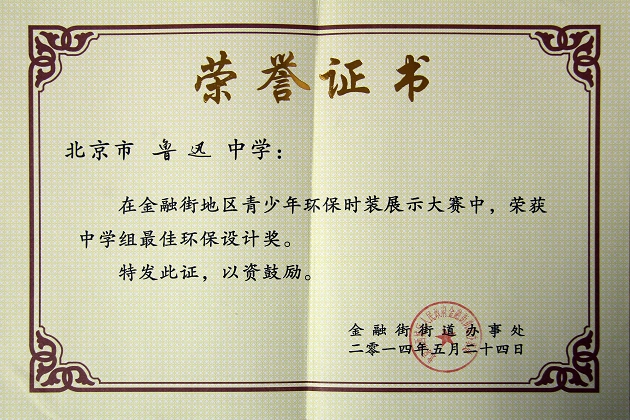 荣誉证书
北京市 鲁迅 中学：
在金融街地区青少年环保时装展示大赛中，荣获
中学组最佳环保设计奖。
特发此证，以资鼓励。
金融街街道办事处
二零一四年五月二十四日